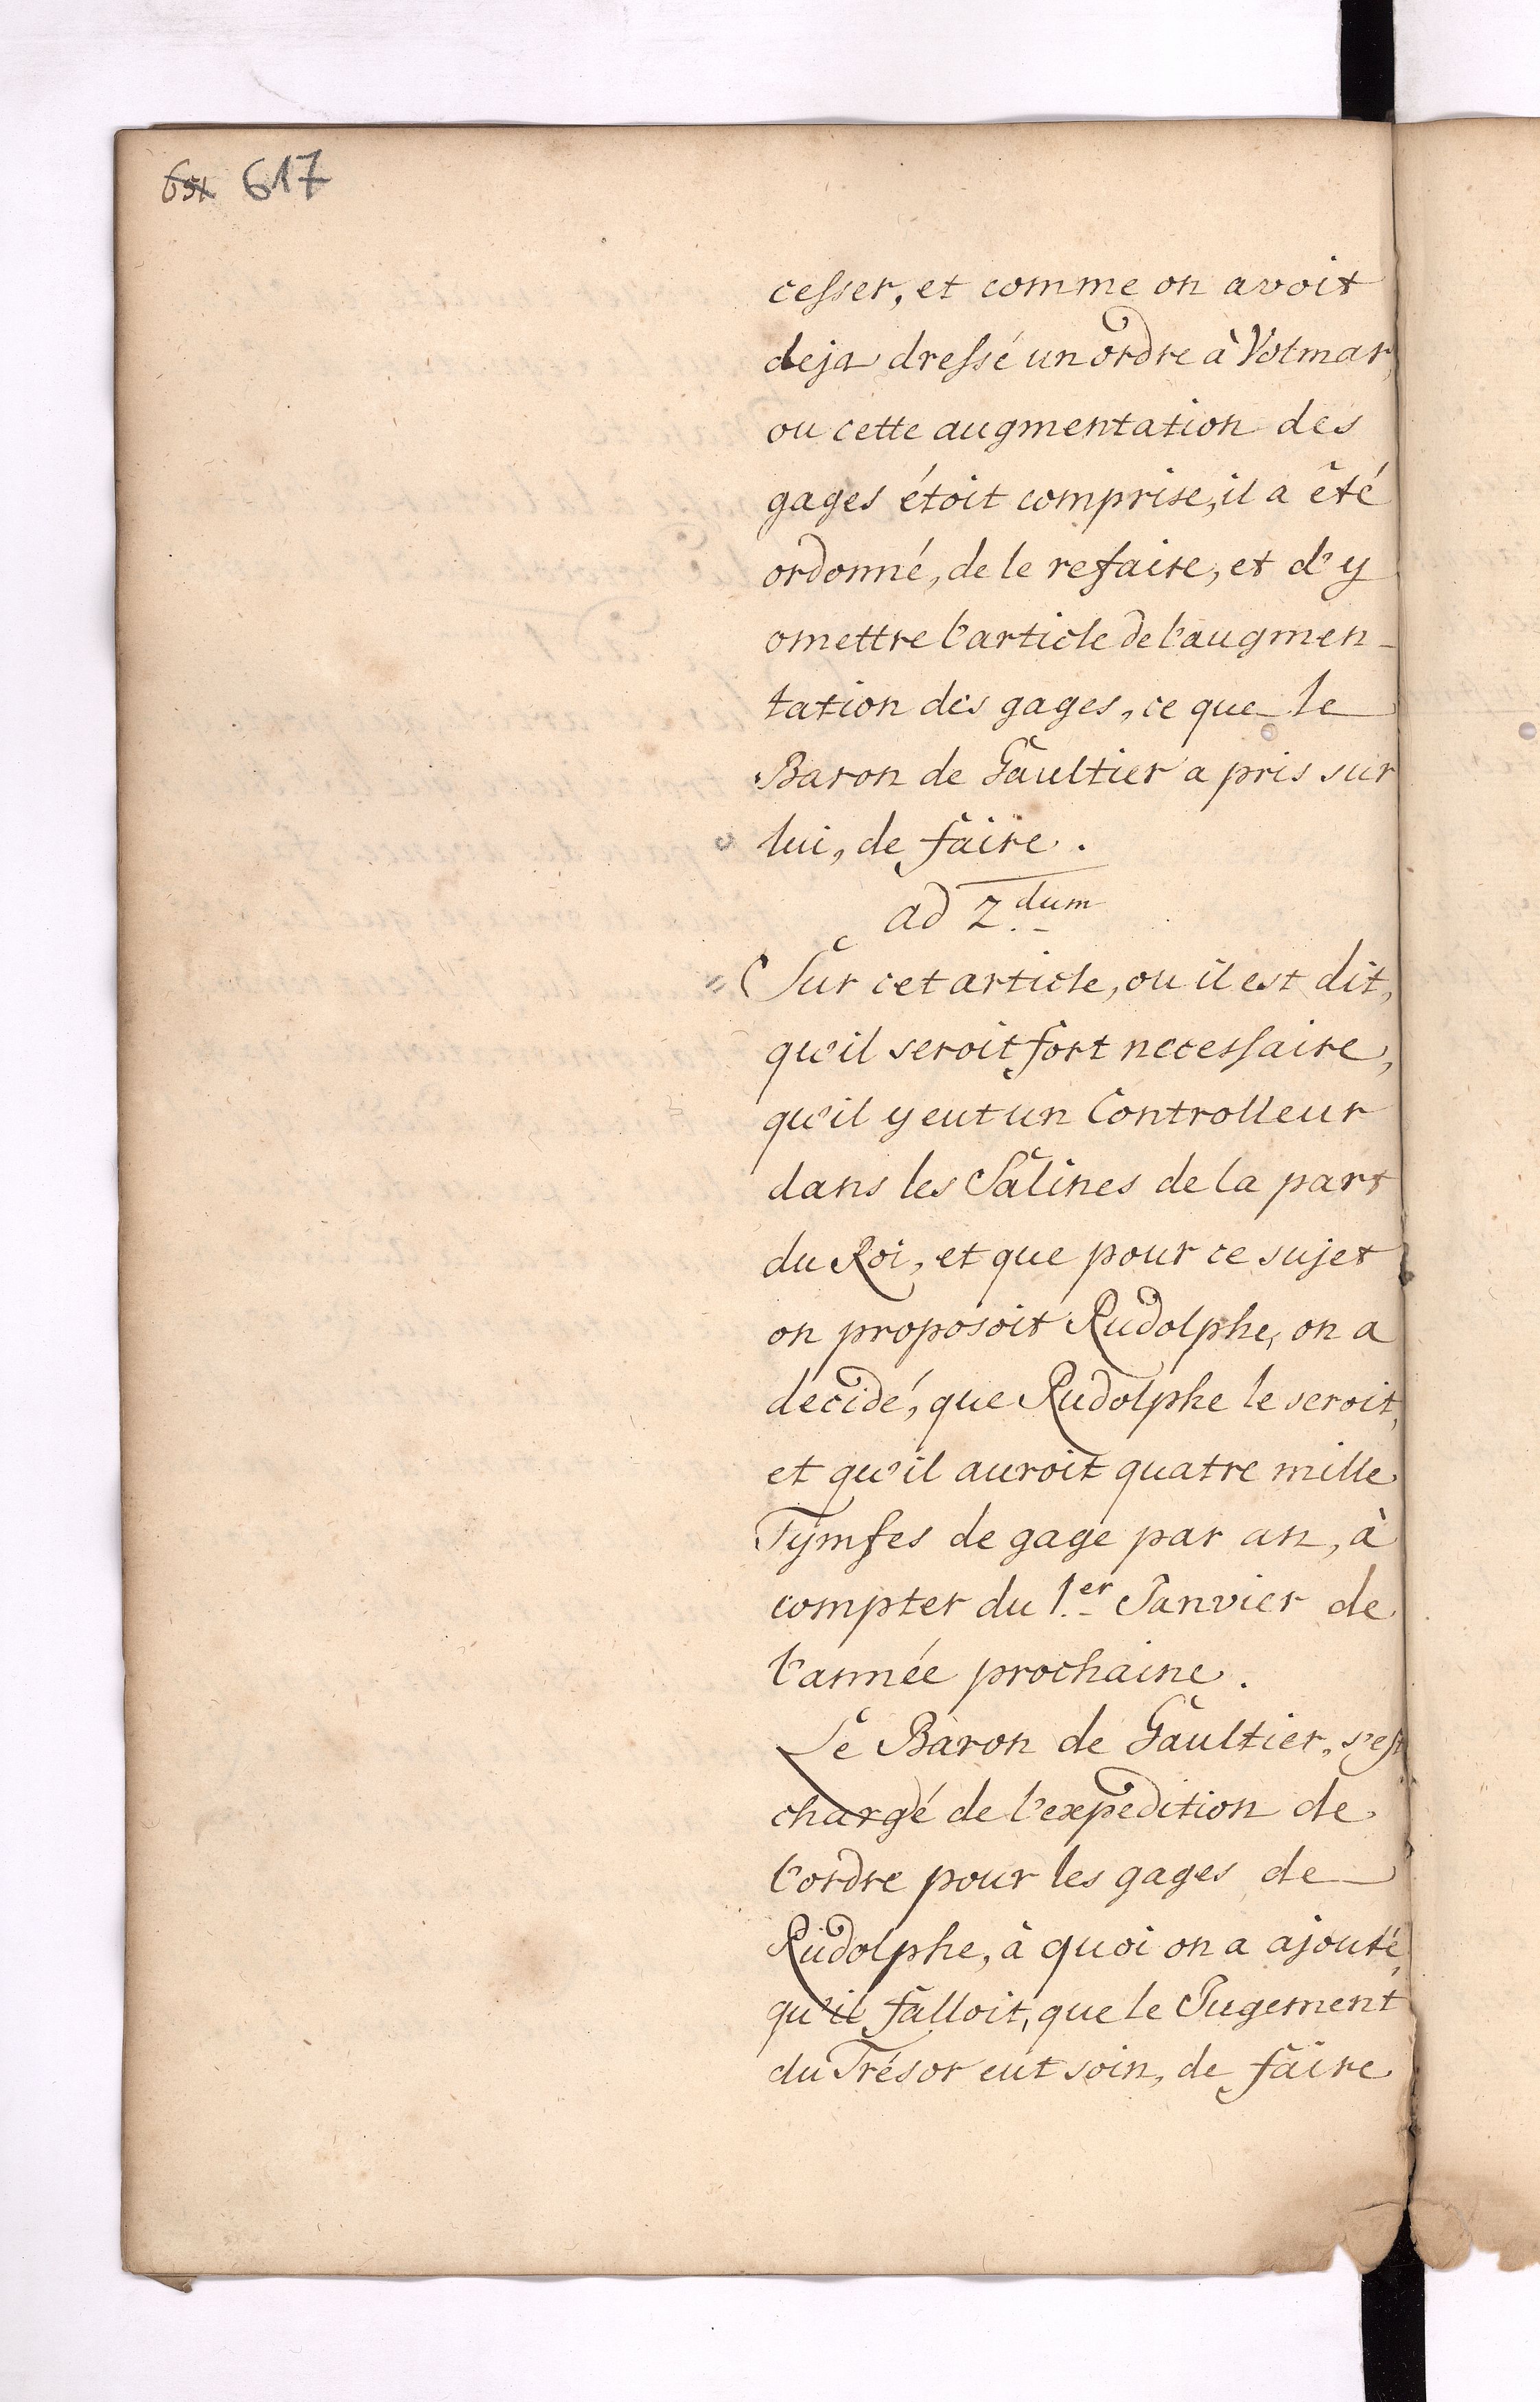 651 617
cesser, et comme on avoit
deja dressé un ordre à Volmar,
ou cette augmentation des
gages étoit comprise, il a êté
ordonné, de le refaire, et d'y
omettre l'article de l'augmen-
tation des gages, ce que le
Baron de Gaultier a pris sur
lui, de faire.
ad 2.dum
Sur cet article, ou il est dit,
qu'il seroit fort necessaire,
qu'il y eut un Controlleur
dans les Salines de la part
du Roi, et que pour ce sujet
on proposoit Rudolphe, on a
decidé, que Rudolphe le seroit,
et qu'il auroit quatre mille
Tymfes de gage par an, à
compter du 1.er Janvier de
l'année prochaine.
Le Baron de Gaultier, s'est
chargé de l'expedition de
l'ordre pour les gages de
Rudolphe, à quoi on a ajouté,
qu'il falloit, que le Jugement
du Trésor eut soin, de faire